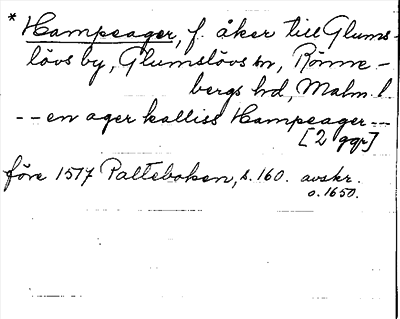 * Hampeager, f. åker till Glums-
lövs by, Glumslövs sn, Rönne-
bergs hd, Malm. l.
-- en ager kalliss Hampeager --
[2 ggr]
före 1517 Palteboken, s. 160. avskr.
o. 1650.